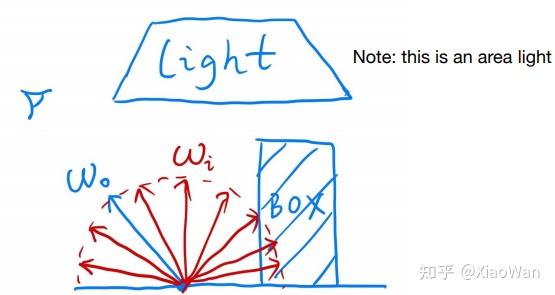 light
Note: this is an area light
ωi
ωo
BOX
知乎 @XiaoWan